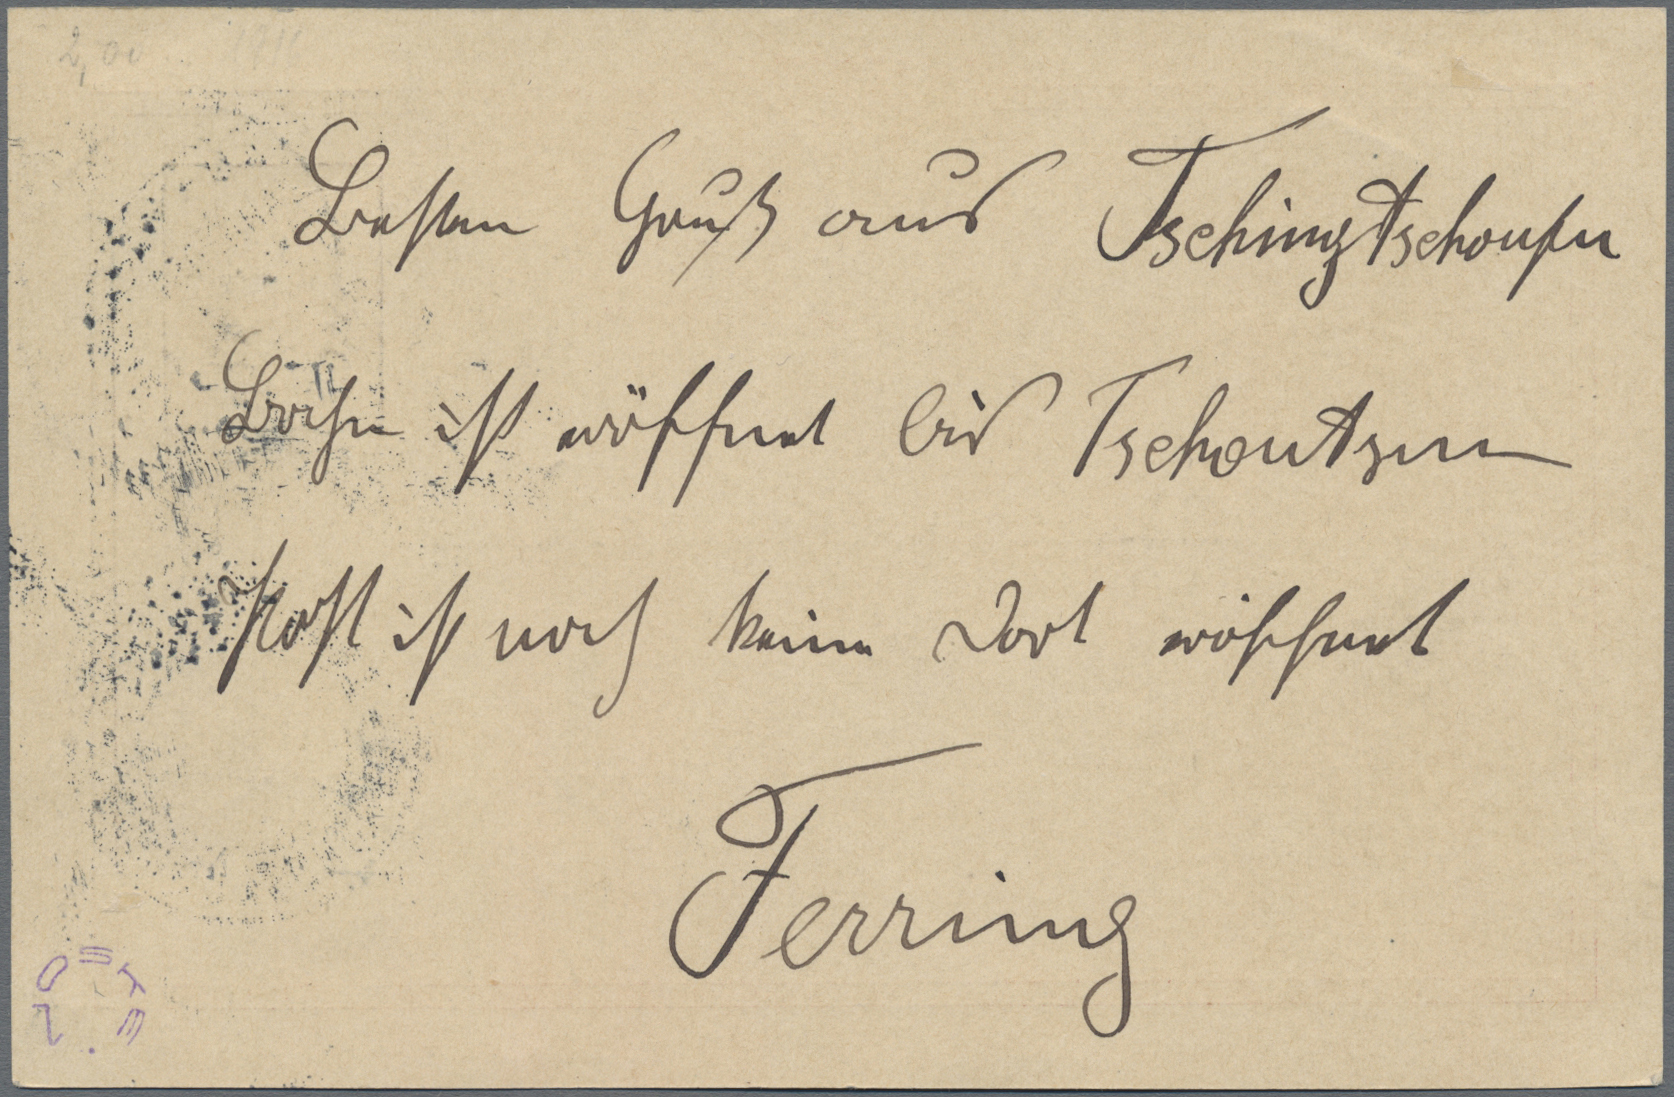 Besten Gruß aus Tschingtschoufu
Bahn ist eröffnet bis Tschoutsun
Post ist noch keine dort eröffnet
Ferring